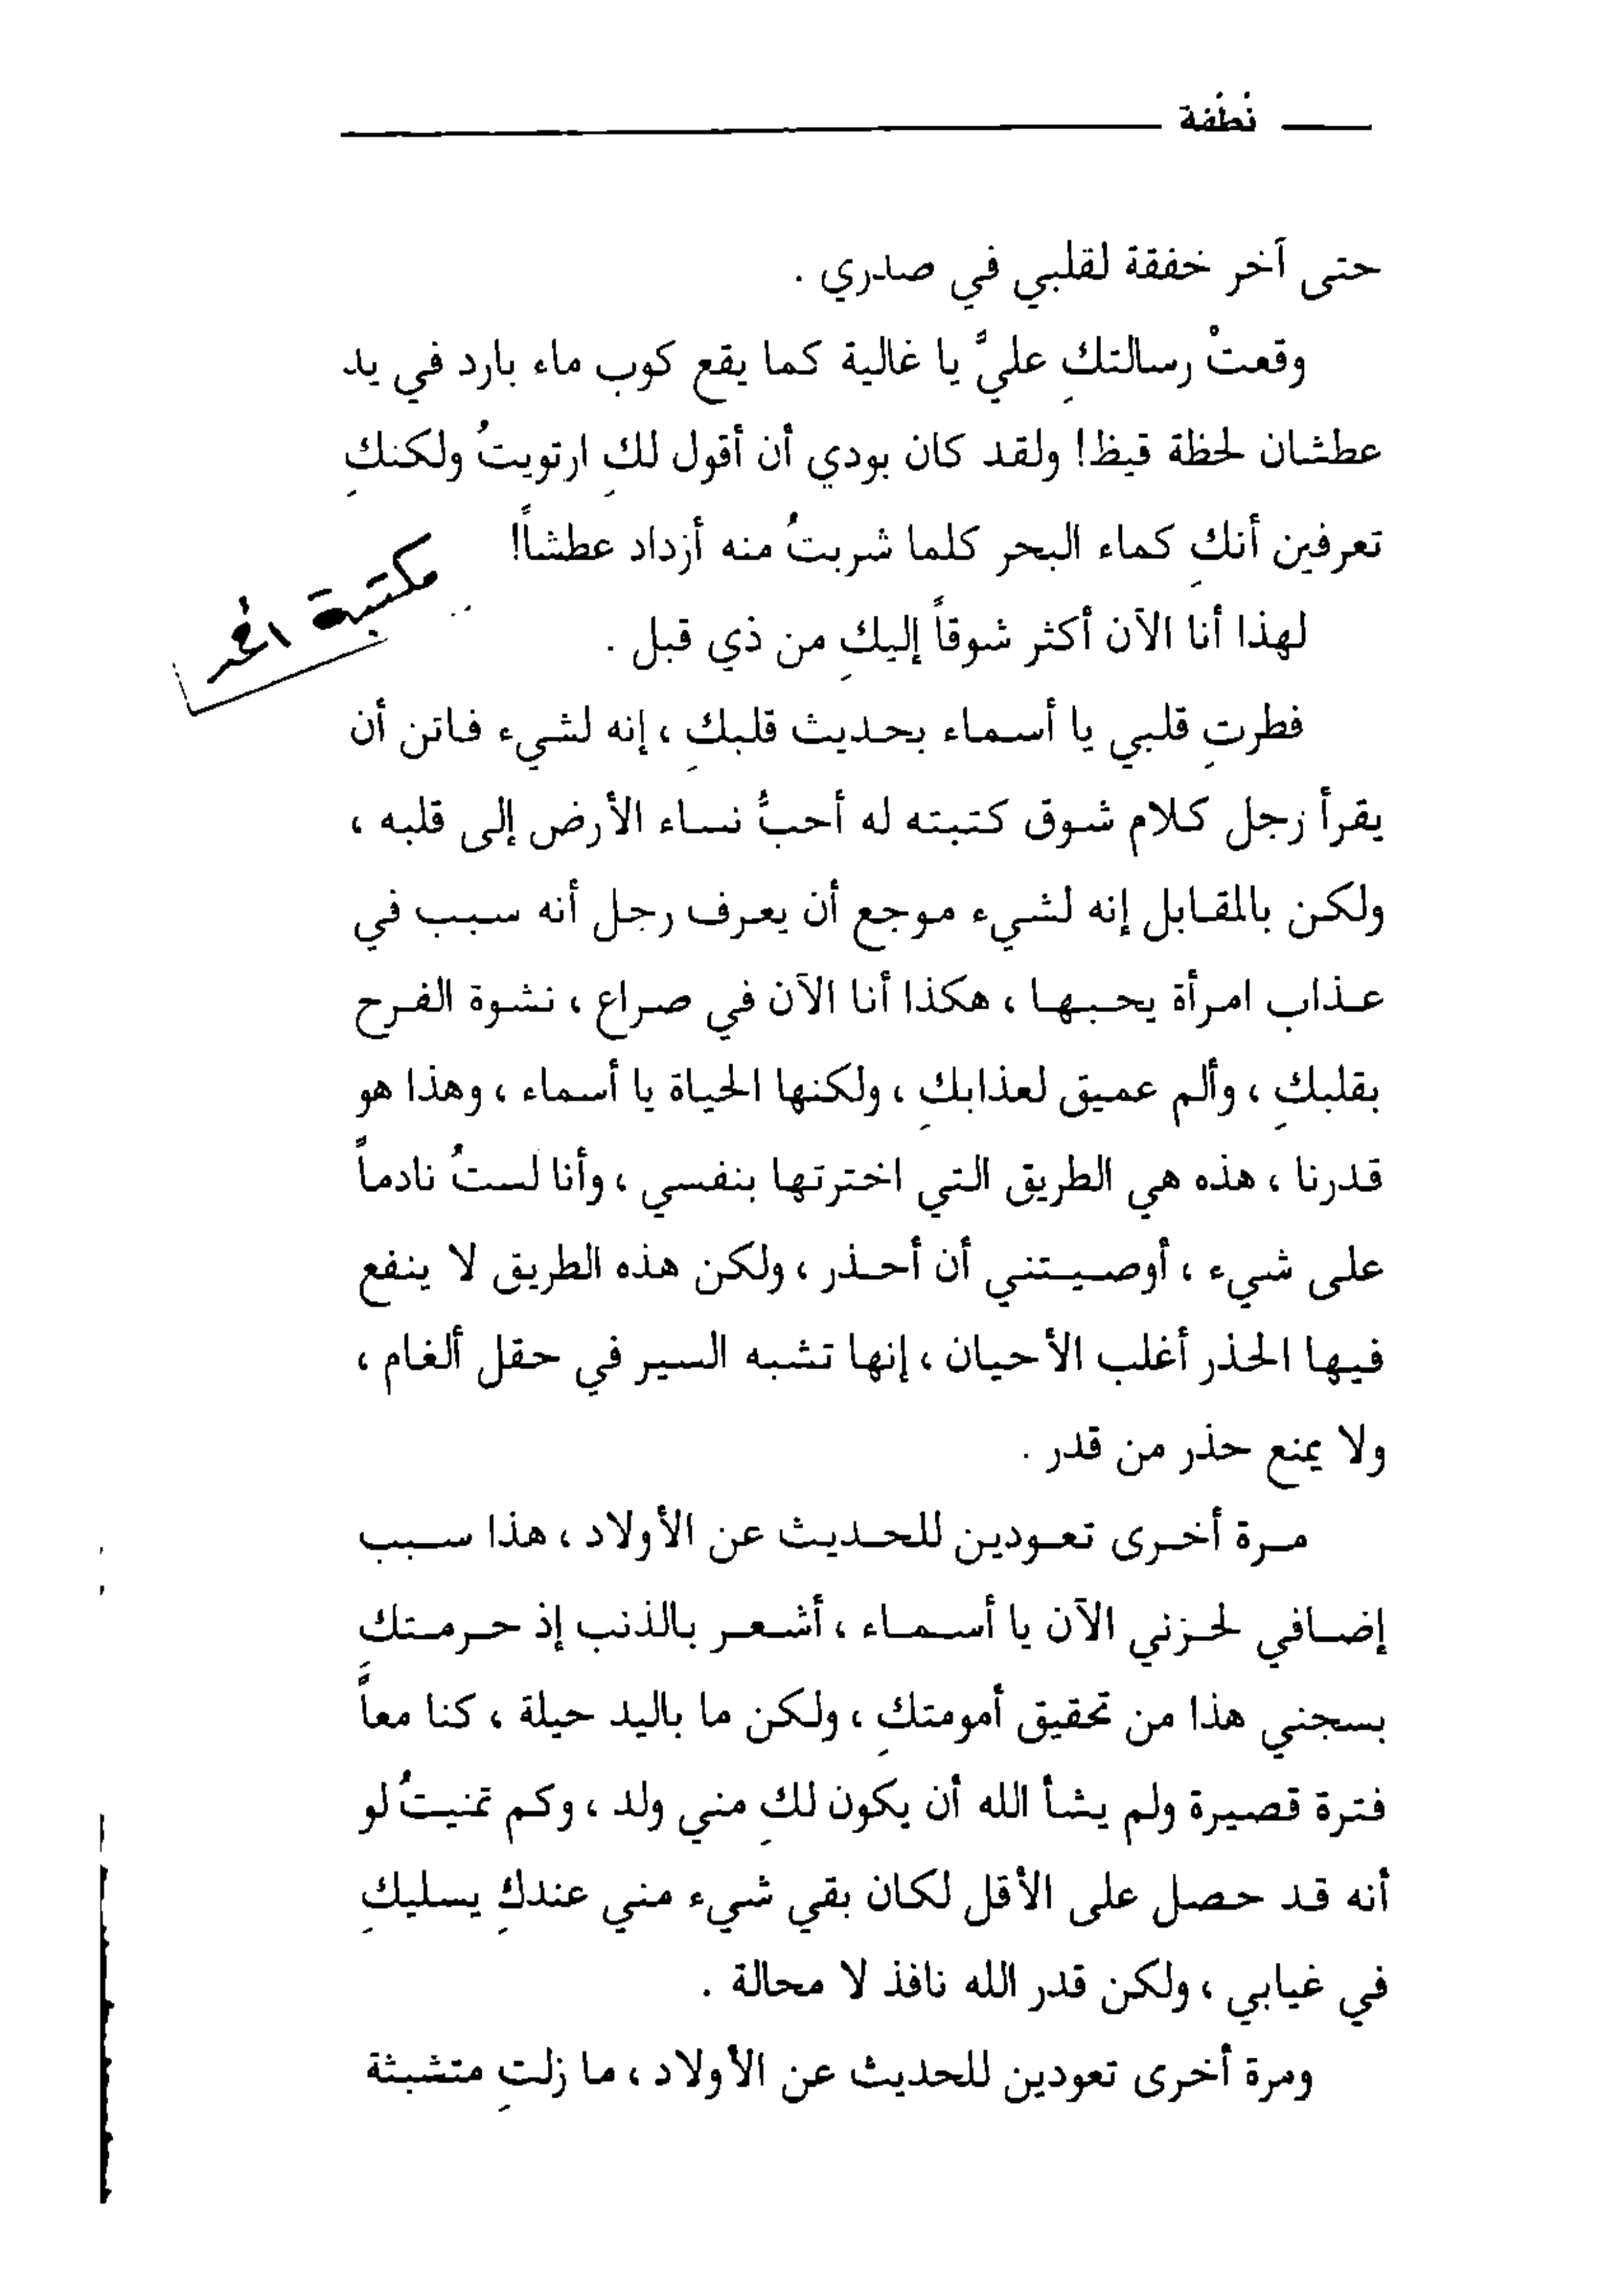 نُطْفَة
حتى آخر خفقة لقلبي في صدري .
وقعتْ رسالتكِ عليَّ يا غالية كما يقع كوب ماء بارد في يد
عطشان لحظة قيظ! ولقد كان بودي أن أقول لكِ ارتويتُ ولكنكِ
تعرفين أنكِ كماء البحر كلما شربتُ منه أزداد عطشاً!
مكتبة
لهذا أنا الآن أكثر شوقاً إليكِ من ذي قبل .
فطرتِ قلبي يا أسماء بحديث قلبكِ ، إنه لشيء فاتن أن
يقرأ رجل كلام شوق كتبته له أحبُّ نساء الأرض إلى قلبه ،
ولكن بالمقابل إنه لشيء موجع أن يعرف رجل أنه سبب في
عذاب امرأة يحبها ، هكذا أنا الآن في صراع ، نشوة الفرح
بقلبكِ ، وألم عميق لعذابكِ ، ولكنها الحياة يا أسماء ، وهذا هو
قدرنا ، هذه هي الطريق التي اخترتها بنفسي ، وأنا لستُ نادماً
على شيء ، أوصيتني أن أحذر ، ولكن هذه الطريق لا ينفع
فيها الحذر أغلب الأحيان ، إنها تشبه السير في حقل ألغام ،
ولا يمنع حذر من قدر .
مرة أخرى تعودين للحديث عن الأولاد ، هذا سبب
إضافي لحزني الآن يا أسماء ، أشعر بالذنب إذ حرمتكِ
بسجني هذا من تحقيق أمومتكِ ، ولكن ما باليد حيلة ، كنا معاً
فترة قصيرة ولم يشأ الله أن يكون لكِ مني ولد ، وكم تمنيتُ لو
أنه قد حصل على الأقل لكان بقي شيء مني عندكِ يسليكِ
في غيابي ، ولكن قدر الله نافذ لا محالة .
ومرة أخرى تعودين للحديث عن الأولاد ، ما زلتِ متشبثة